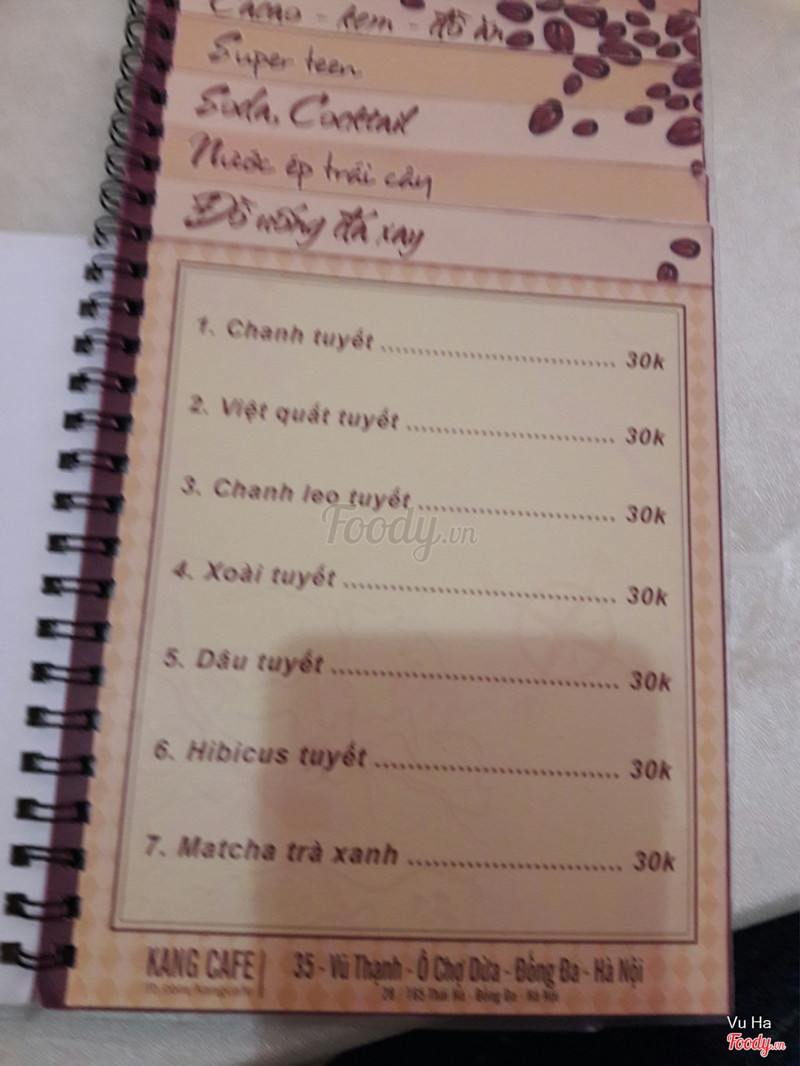 Cacao - kem - đồ ăn
Super teen
Soda, Cocktail
Nước ép trái cây
Đồ uống đá xay
1. Chanh tuyết ........................ 30k
2. Việt quất tuyết ........................ 30k
3. Chanh leo tuyết ........................ 30k
Foody.vn
4. Xoài tuyết ........................ 30k
5. Dâu tuyết ........................ 30k
6. Hibicus tuyết ........................ 30k
7. Matcha trà xanh ........................ 30k
KANG CAFE
35 - Vũ Thạnh - Ô Chợ Dừa - Đống Đa - Hà Nội
Thái Hà - Đống Đa - Hà Nội
Vu Ha
Foody.vn